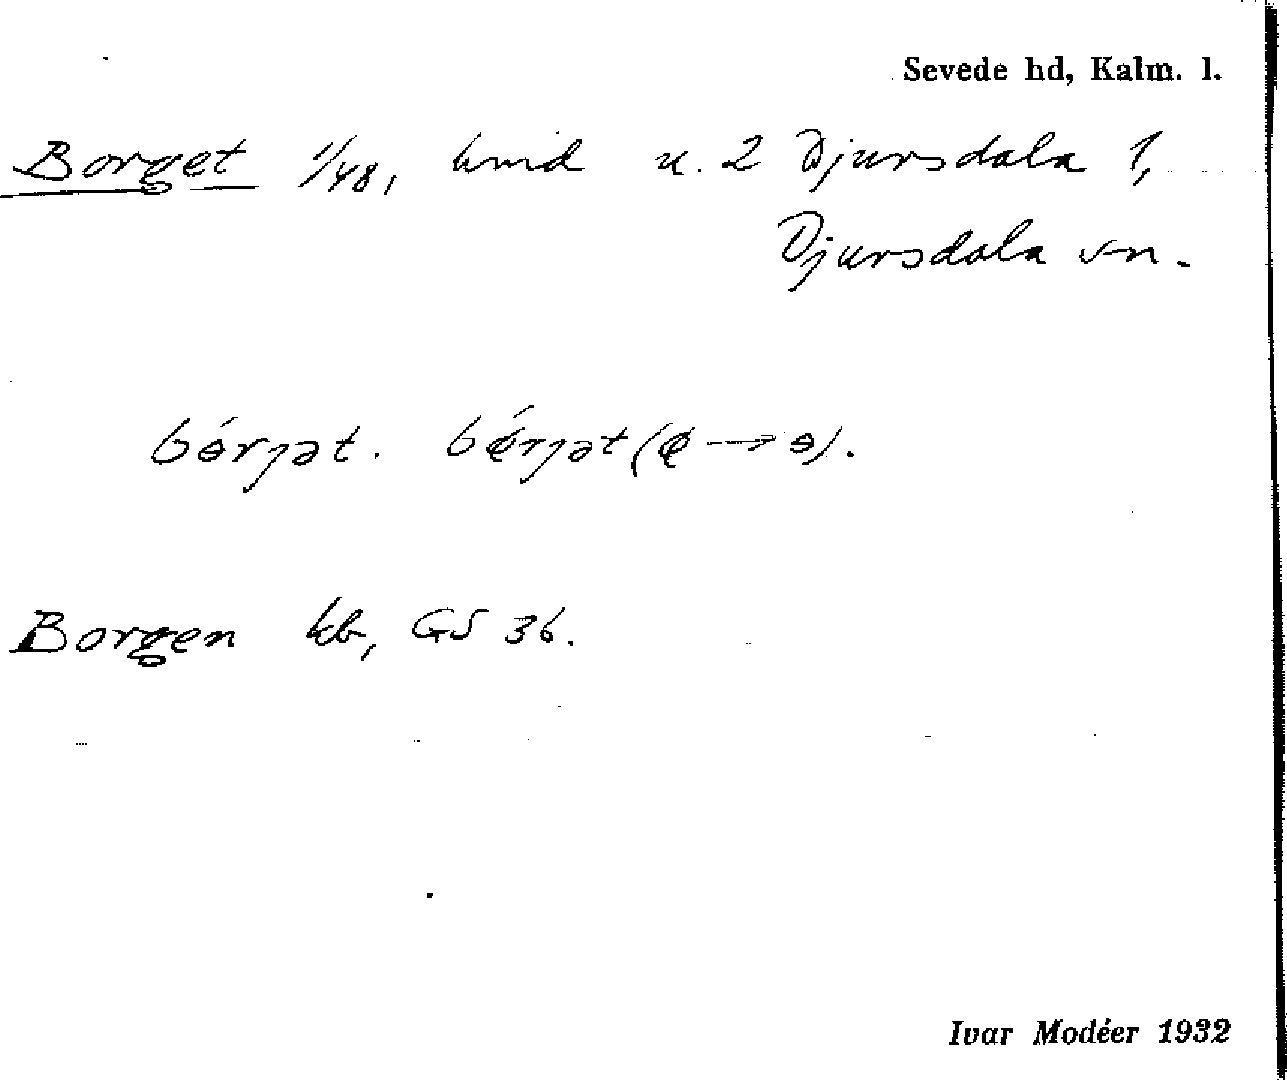 Sevede hd, Kalm. l.
Borget 1/48, hmd u. 2 Djursdala 1,
Djursdala sn.
bɵ́rjət. bɵ́rjət (ɵ → ɵ).
Borgen kb, GS 36.
Ivar Modéer 1932